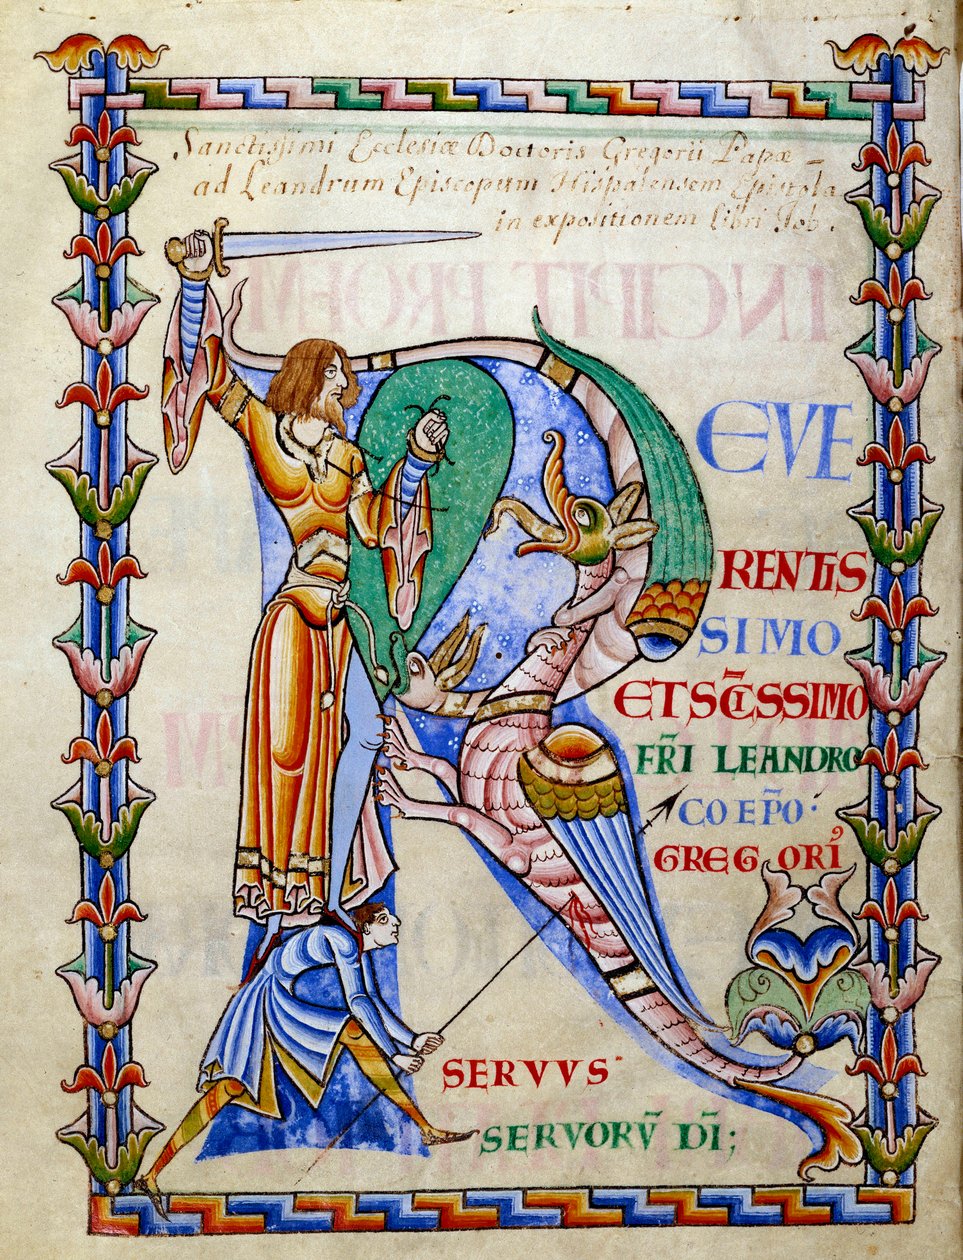 Sanctissimi Ecclesiæ Doctoris Gregorii Papæ
ad Leandrum Episcopum Hispalensem Epistola
in expositionem libri Job.
INCIPIT PROEM
R EVE
RENTIS
SIMO
ET SC̄ISSIMO
FR̄I LEANDRO
COEP̄O·
GREGORI᾿
SERVVS·
SERVORV̄ DI̅;